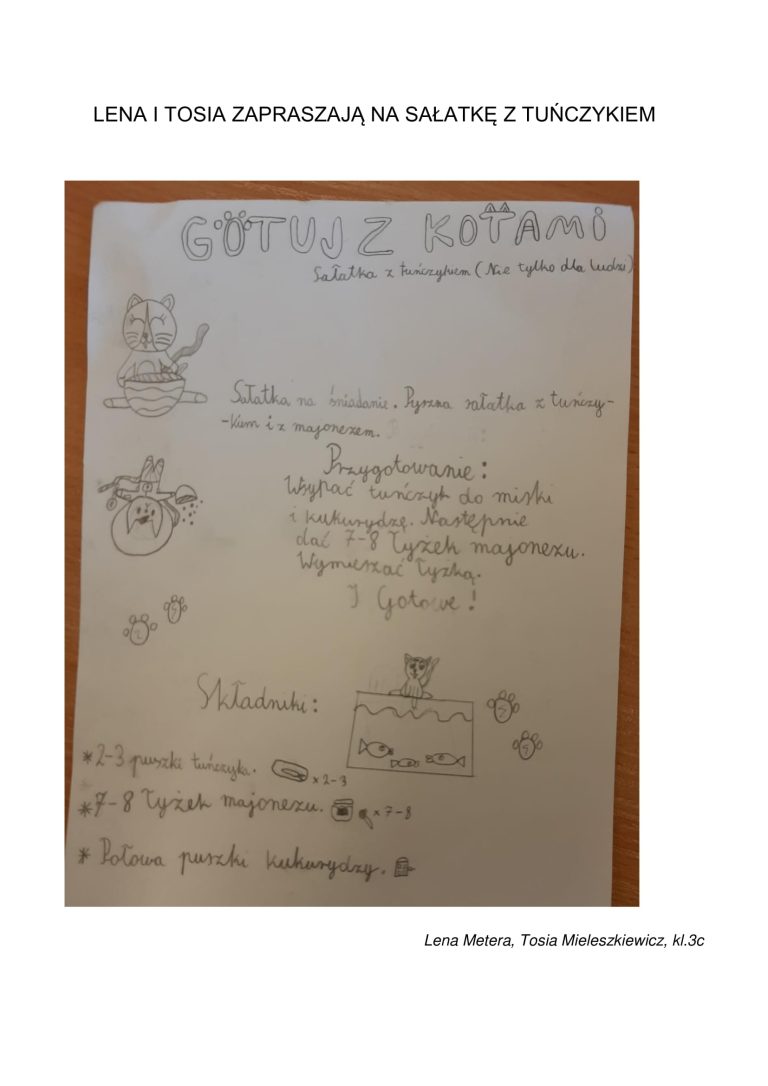 LENA I TOSIA ZAPRASZAJĄ NA SAŁATKĘ Z TUŃCZYKIEM
GOTUJ Z KOTAMI
Sałatka z tuńczykiem (Nie tylko dla ludzi)
Sałatka na śniadanie. Pyszna sałatka z tuńczy-
-kiem i z majonezem.
Przygotowanie:
Wsypać tuńczyk do miski
i kukurydzę. Następnie
dać 7-8 łyżek majonezu.
Wymieszać łyżką.
I Gotowe!
Składniki:
* 2-3 puszki tuńczyka. x 2-3
* 7-8 łyżek majonezu. x 7-8
* Połowa puszki kukurydzy.
Lena Metera, Tosia Mieleszkiewicz, kl.3c